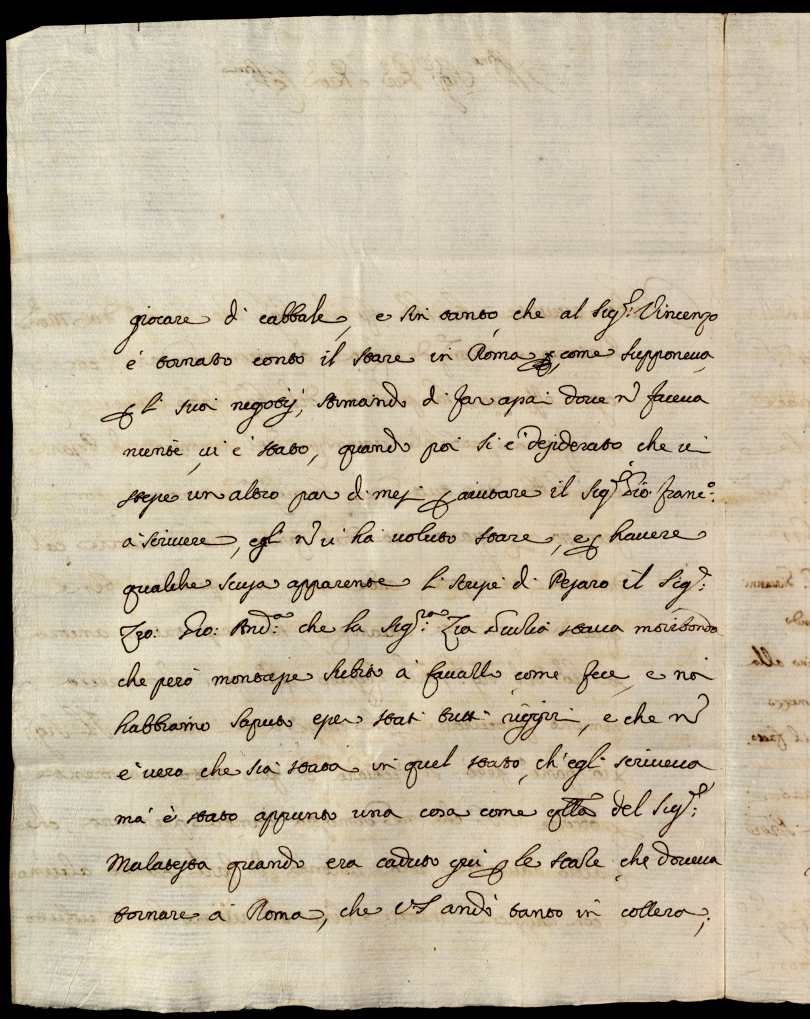 giocare di cabbale, e sin tanto che al Sig.r Vincenzo
è tornato conto il stare in Roma, come supponeva
p li suoi negotij, stimando di far assai dove nõ faceva
niente, vi è stato, quando poi si è desiderato che vi
stesse un altro par di mesi p aiutare il Sig.r Gio: Franc.o
a scrivere, egli nõ vi ha voluto stare, e p havere
qualche scusa apparente li scrisse di Pesaro il Sig.r
Zio: Gio: And.a che la Sig.ra Zia Giulia stava moribonda
che però montasse subito a Cavallo come fece, e noi
habbiamo saputo esser stati tutti riggiri, e che nõ
è vero che sia stata in quel stato, ch'egli scriveva
ma è stato appunto una cosa come qlla del Sig.r
Malatesta quando era caduto giù p le scale che doveva
tornare a Roma, che VS andò tanto in collera;